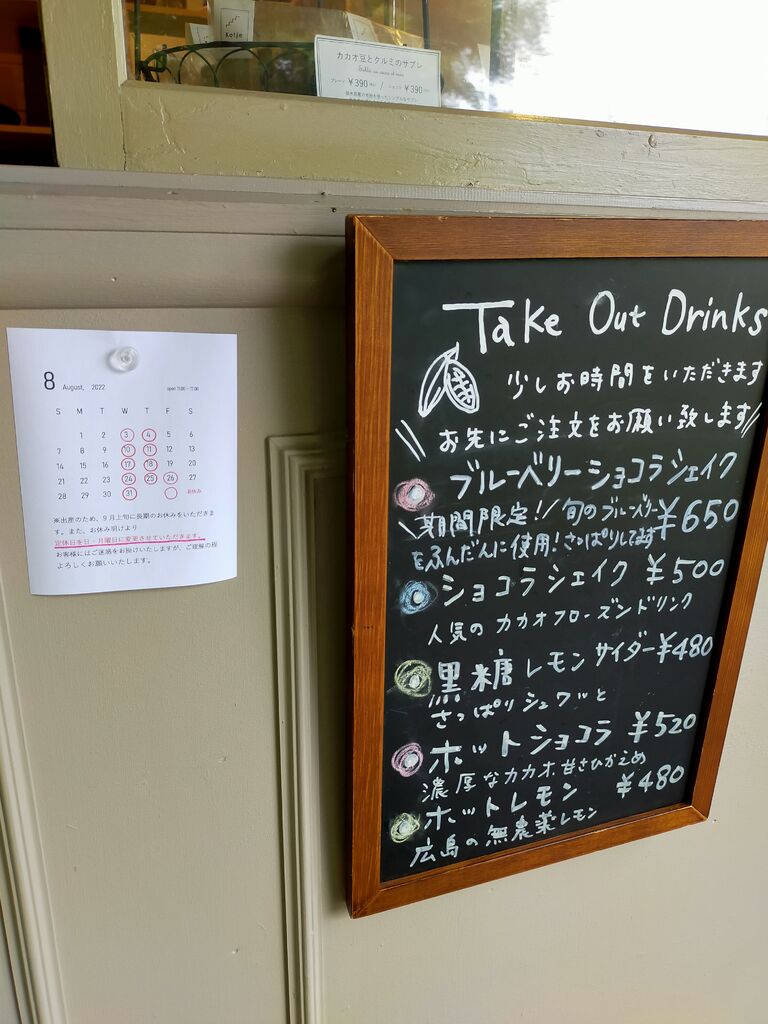 Kotje
カカオ豆とクルミのサブレ
プレーン ¥390 / ショコラ ¥390
8 August, 2022
S M T W T F S
1 2 3 4 5 6
7 8 9 10 11 12 13
14 15 16 17 18 19 20
21 22 23 24 25 26 27
28 29 30 31 お休み
※出産のため、9月上旬に長期のお休みをいただきま
す。また、お休み明けより
定休日を日・月曜日に変更させていただきます。
お客様にはご迷惑をお掛けいたしますが、ご理解の程
よろしくお願いいたします。
Take Out Drinks
少しお時間をいただきます
お先にご注文をお願い致します
ブルーベリーショコラシェイク
期間限定!旬のブルーベリー ¥650
をふんだんに使用!さっぱりしてます
ショコラシェイク ¥500
人気のカカオフローズンドリンク
黒糖レモンサイダー ¥480
さっぱりシュワッと
ホットショコラ ¥520
濃厚なカカオ.甘さひかえめ
ホットレモン ¥480
広島の無農薬レモン